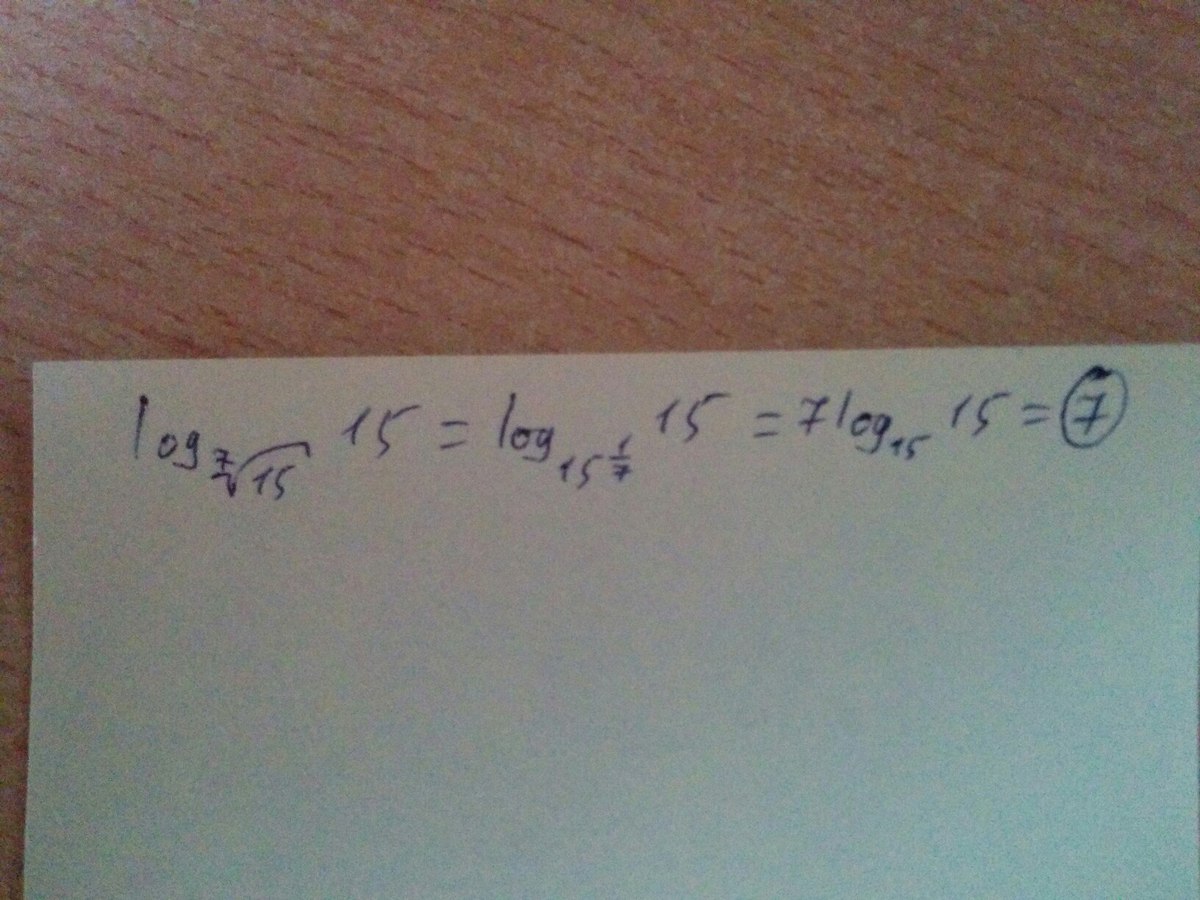 log_{\sqrt[7]{15}} 15 = log_{15^{\frac{1}{7}}} 15 = 7 log_{15} 15 = 7